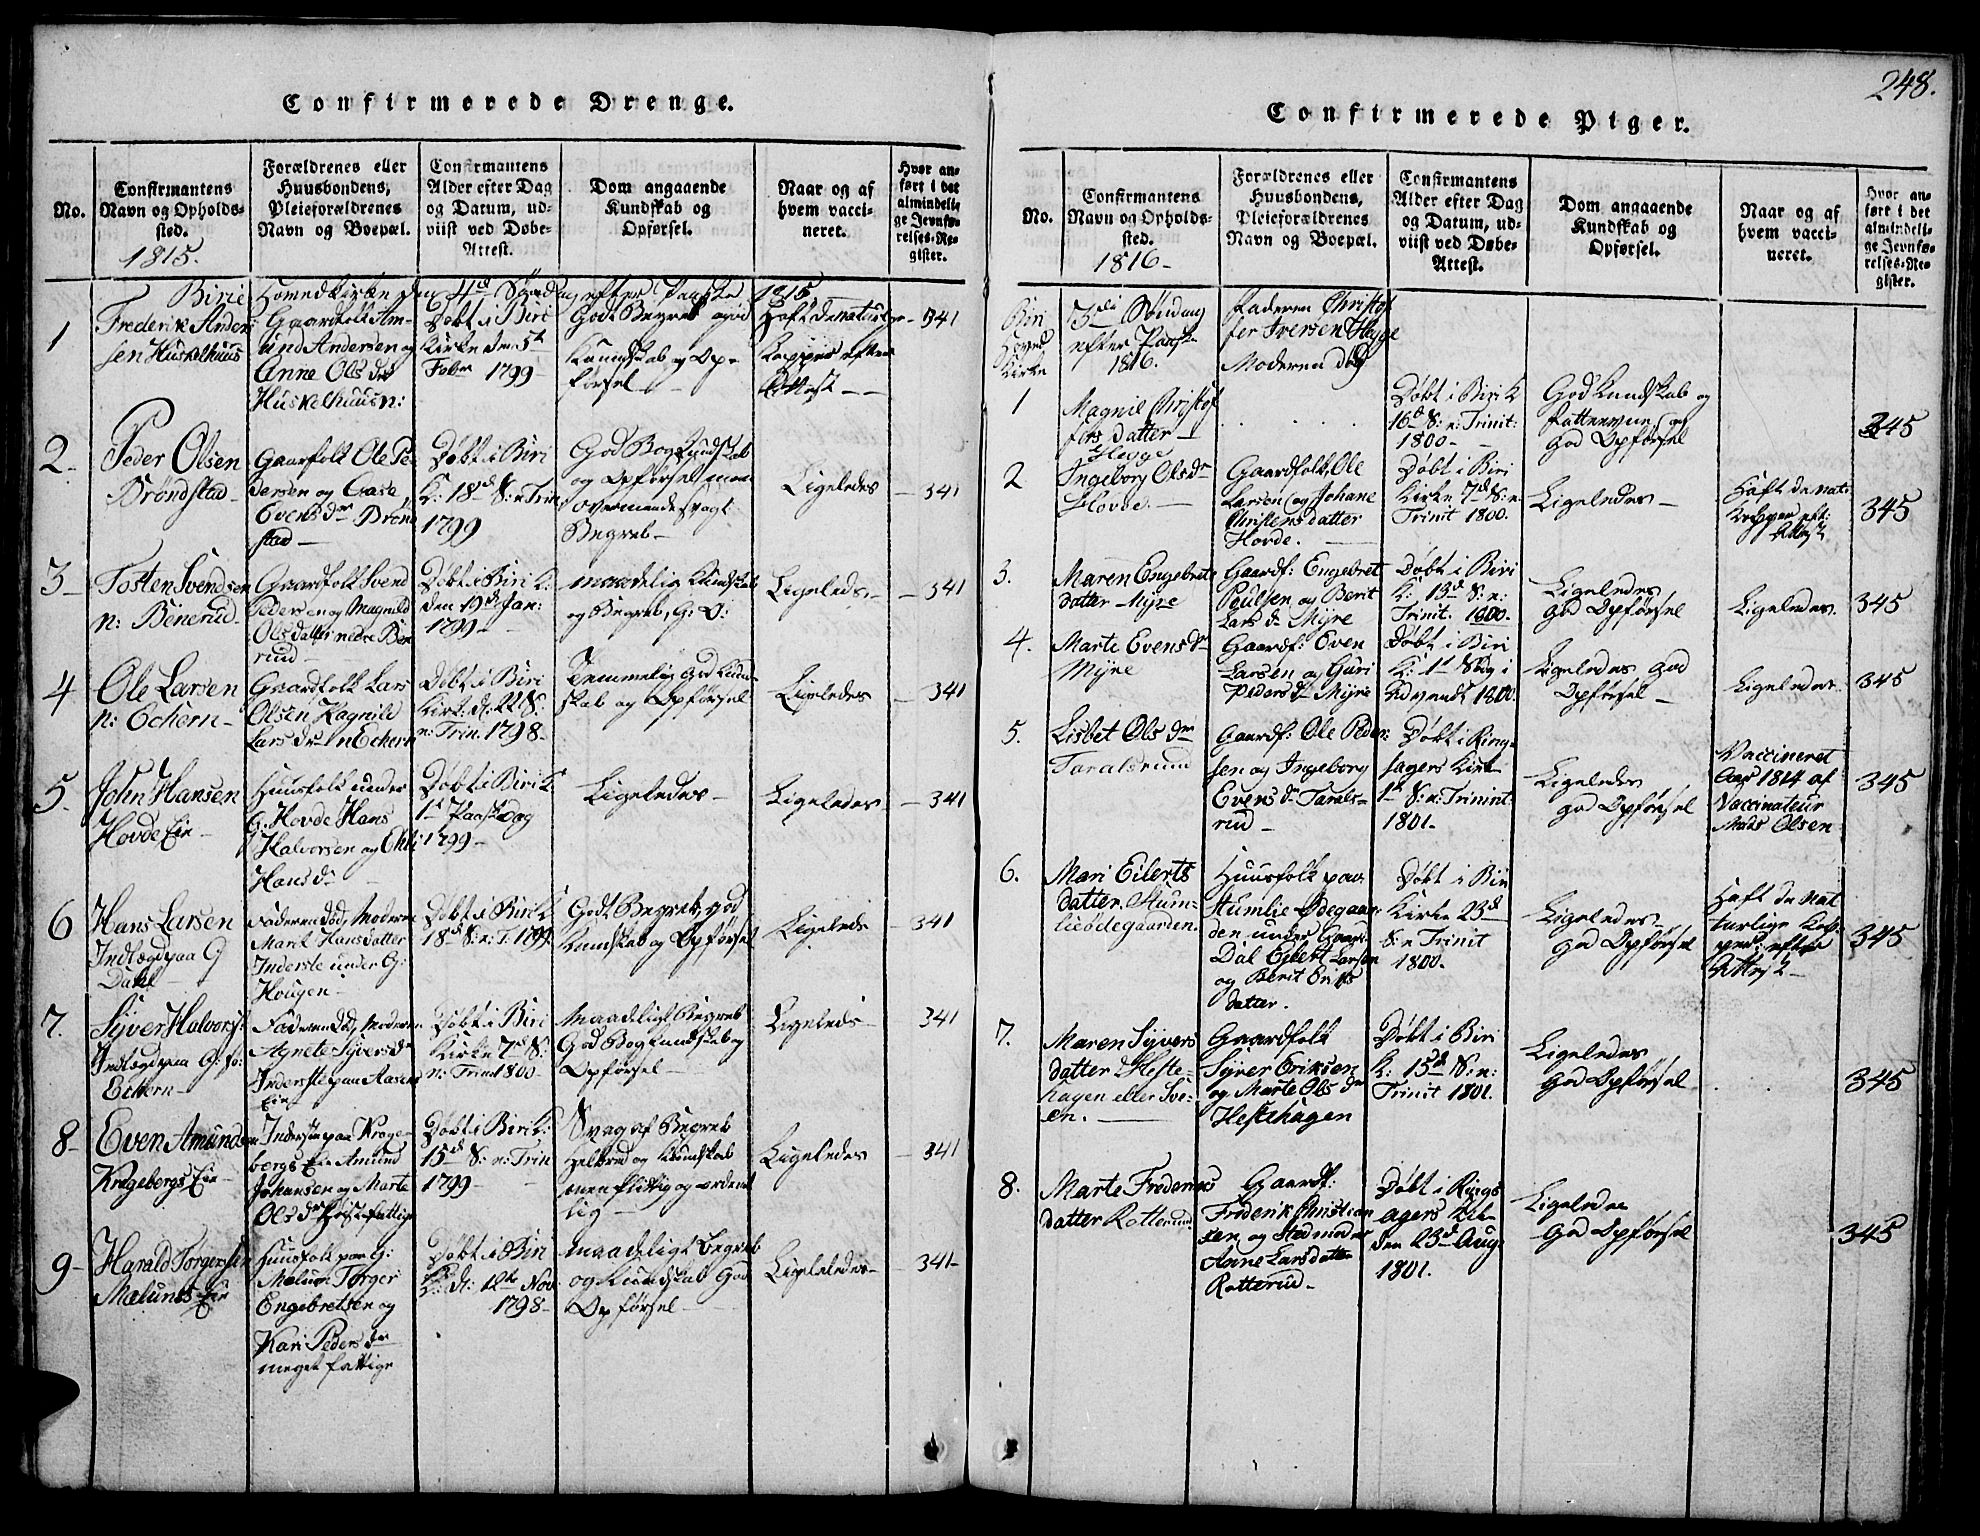 248.
Confirmerede Drenge.
No.
Confirmantens
Navn og Opholds-
sted.
1815.
Forældrenes eller
Huusbondens,
Pleieforældrenes
Navn og Boepæl.
Confirmantens
Alder efter Dag
og Datum, ud-
viist ved Døbe-
Attest.
Dom angaaende
Kundskab og
Opførsel.
Naar og af
hvem vacci-
neret.
Hvor an-
ført i det
almindeli-
ge Jevnfø-
relses-Re-
gister.
Birie Hovedkirke den 4de Søndag efter Paaske 1815
1
Frederik Ander
sen Huskelhuus
Gaardfolk Am-
und Andersen og
Anne Ols dr
Huskelhuus n:
Døbt i Biri
Kirke den 5te
Febr 1799
Godt Begreb og
Kundskab og Op-
førsel
Haft de naturlige
Kopper efter
Attest
341
2
Peder Olsen
Brøndstad
Gaarfolk Ole Pe-
dersen og
Evens dr Brønd
stad
Døbt i Biri
K: 18de S: n Trin
1799
God Bogkundskab
og Opførsel men
overmaade svagt
Begreb
Ligeledes
341
3
Tosten Svendsen
n: Benerud
Gaardfolk Svend
Pedersen og Magnild
Olsdatter nedre Ben
rud
Døbt i Biri K:
den 19de Jan:
1799
maadelig Kundskab
og Begreb, G: O:
Ligeledes
341
4
Ole Larsen
n: Echern
Gaardfolk Lars
Olsen Ragnild
Lars dr n Echern
Døbt i Biri
Kirk: d: 22 S:
n: Trin. 1798
Temmelig god Kund
skab og Opførsel
Ligeledes
341
5
John Hansen
Hovde Eie
Huusfolk under
G: Hovde Hans
Halvorsen og
Hans dr
Døbt i Biri K
1te Paaskedag
1799
Ligeledes
Ligeledes
341
6
Hans Larsen
Indtægt paa G
Dahl
Faderen død, Moderen
Marit Hansdatter
Inderste under G:
Hougen
Døbt i Biri K
18de S: n: T: 1799
Godt Begreb, god
Kundskab og Opførsel
Ligeleds
341
7.
Syver Halvors
Indtægt paa G: fo:
Echern
Faderen død, Moderen
Agnete Syvers dr
Inderste paa Aasens
Eie
Døbt i Biri
Kirke 7de S:
n: Trin 1800
Maadeligt Begreb
God Bogkundskab og
Opførsel
Ligeleds
341
8
Even Amunds
Kragebergs Eie
Inderste paa Krage-
bergs Eie Amund
Johansen og Marte
Ols dr høist fattige
Døbt i Biri K:
15de S: n: Trin
1799
Svag af Begreb
Helbred og Kundskab
men flittig og ordent
lig
Ligeledes
341
9
Harald Torgersen
Mælums Eie
Huusfolk paa G:
Mælum Torger
Engebretsen og
Kari Peders dr
meget fattige
Døbt i Biri
K: d: 12te Nov
1798
Maadeligt Begreb
og Kundskab God
Opførsel
Ligeledes
341
Confirmerede Piger.
No.
Confirmantens
Navn og Opholds-
sted.
1816
Forældrenes eller
Huusbondens,
Pleieforældrenes
Navn og Boepæl.
Confirmantens
Alder efter Dag
og Datum, ud-
viist ved Døbe-
Attest.
Dom angaaende
Kundskab og
Opførsel.
Naar og af
hvem vacci-
neret.
Hvor an-
ført i det
almindeli-
ge Jevnfø-
relses-Re-
gister.
Biri
Hoved
Kirke
3die Søndag
efter Paaske
1816.
Faderen Christof
fer Iversen Hegge
Moderen død
1
Magnil Christof
fers datter
Hegge
Døbt i Biri K
16de S: n: Trinit:
1800
God Kundskab og
Fatteevne og
god Opførsel
345
2
Ingeborg Ols dr
Hovde.
Gaardfolk Ole
Larsen og Johane
Christensdatter
Hovde.
Døbt i Biri
Kirke 7de S: n:
Trinit 1800.
Ligeledes
Haft de nat:
Kopper eft:
Attest
345
3.
Maren Engebrets
datter Myre
Gaardf: Engebret
Poulsen og Berit
Lars dr Myre
Døbt i Biri
K: 13de S: n:
Trinit. 1800.
Ligeledes
god Opførsel
Ligeledes.
345
4.
Marte Evens dr
Myre
Gaardf: Even
Larsen og Guri
Peders dr Myre
Døbt i Biri
K: 1te Sdg i
Advendt 1800.
Ligeledes god
Opførsel
Ligeledes.
345
5.
Lisbet Ols dr
Taralsrund
Gaardf: Ole Peder:
sen og Ingeborg
Evens dr Tarals-
rud
Døbt i Ring-
sagers Kirk
1te S: n: Trinit.
1801.
Ligeledes
god Opførsel
Vaccineret
Aar 1814 af
Vaccinateur
Mads Olsen
345
6.
Mari Eilerts
datter Hum-
lieødegaarden.
Huusfolk paa
Humlie Ødegaar-
den under Gaard
Dal Eilert Larsen
og Berit Eriks
datter.
Døbt i Biri
Kirke 23de
S: n Trinit
1800.
Ligeledes
god Opførsel
Haft de Nat
turlige Kop
per efter
Attest
345
7.
Maren Syvers
datter Heste-
hagen eller Sve-
en.
Gaardfolk
Syver Eriksen
og Marte Ols dr
Hestehagen
Døbt i Biri
K: 15de S: n:
Trinit 1801.
Ligeledes
god Opførsel
345
8.
Marte Frederiks
datter Rotterud
Gaardf:
Frederik Christian
sen og Stedmoder
Anne Larsdatter
Rotterud
Døbt i Rings
agers Kirk
den 23de Aug:
1801.
Ligeledes
god Opførsel
345